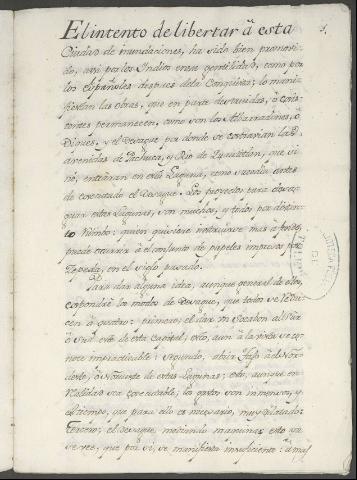 El intento de libertar â esta
Ciudad de inundaciones, ha sido bien promovi-
do, asi por los Indios en su gentilidad, como por
los Españoles despues de la Conquista; lo mani-
fiestan las obras, que en parte destruidas, ô cons-
tantes permanecen, como son las Albarradones, ô
Diques, y el Desague por donde se extrahian las
avenidas de Pachuca, y Rio de Quautitlan, que si
nó, entrarian en esta Laguna, como sucedia antes
de executado el Desague. Los proyectos para desa-
guar estas Lagunas, son muchos, y todos por distin-
to rumbo: quien quisiere instruirse mas â fondo,
puede ocurrir â el conjunto de papeles impresos por
Zepeda, en el siglo pasado.
Para dar alguna idea, aunque general de ellos,
expondré los modos de Desague, que todos se redu-
cen â quatro: primero; el dar un Socabon al Sur
ô Sud este de esta Capital; esto, aun â la vista se co-
noce impracticable: segundo, abrir tajo â el Nor-
deste, ô Noroeste de estas Lagunas; esto, aunque en
realidad sea executable; los gastos son inmensos, y
el tiempo, que para ello es necesario, muy dilatado:
tercero; el desague, mediando maquinas esto ya
se vee, que por si, se manifiesta insuficiente: â mas